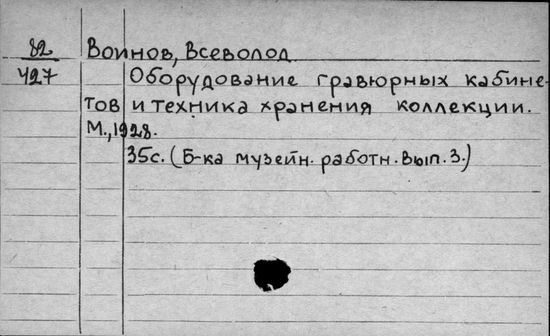 82 Воинов, Всеволод
427 Оборудование гравюрных кабине-
тов и техника хранения коллекции.
М., 1928.
35с. (Б-ка музейн. работн. Вып. 3.)